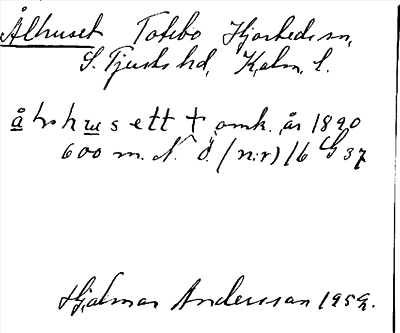 Ålhuset Totebo Hjorteds sn,
S. Tjusts hd, Kalm. l.
å hs h u s ett † omk. år 1890
600 m. N. Ö. (n:r) 16 G 37
Hjalmar Andersson 1959.